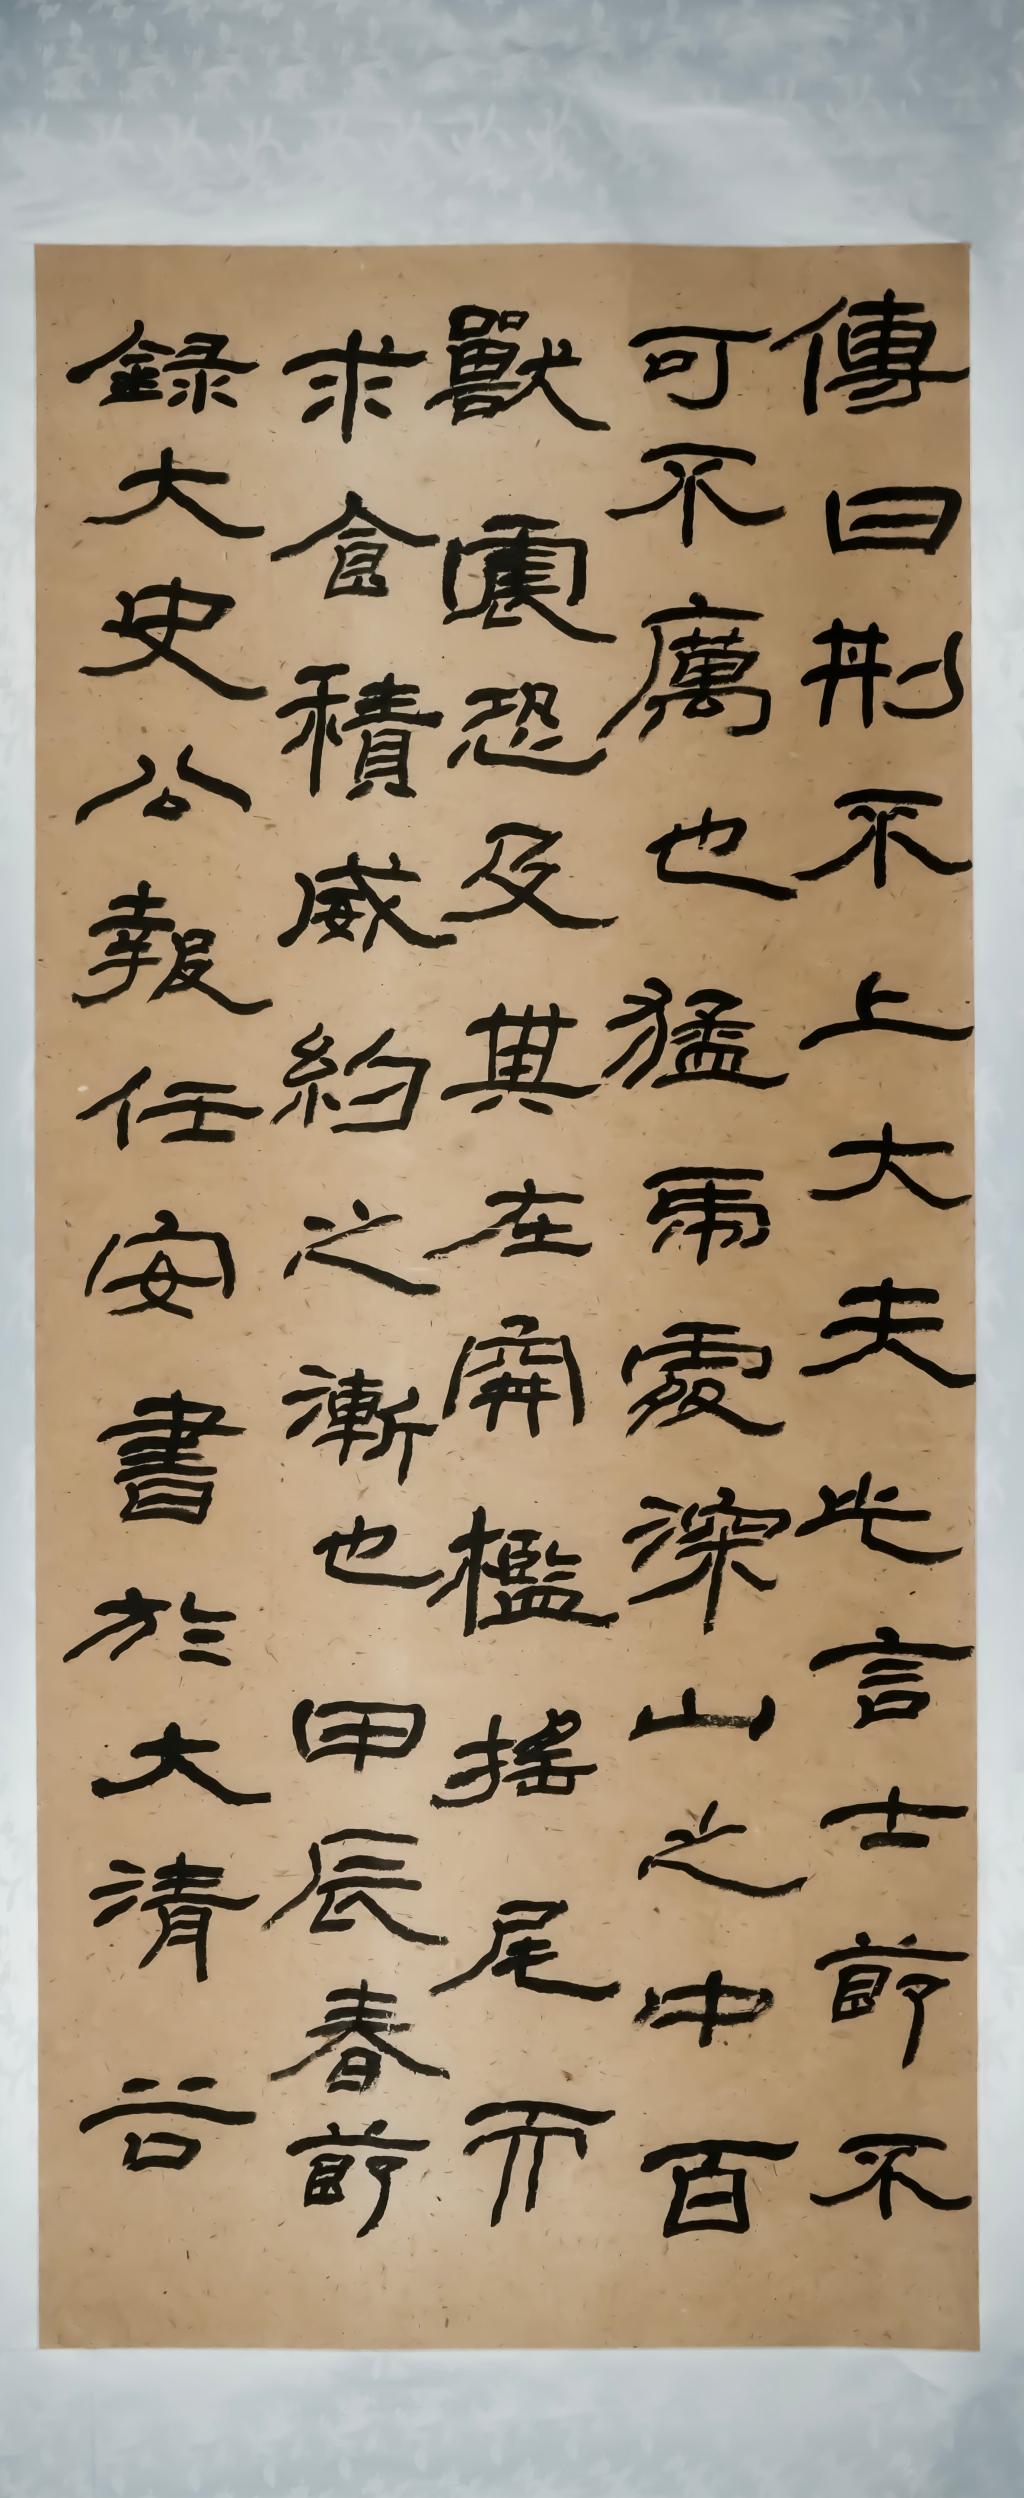 傳曰刑不上大夫此言士節不
可不厲也猛虎處深山之中百
獸震恐及其在穽檻搖尾而
求食積威約之漸也甲辰春節
録大史公報任安書於大清谷